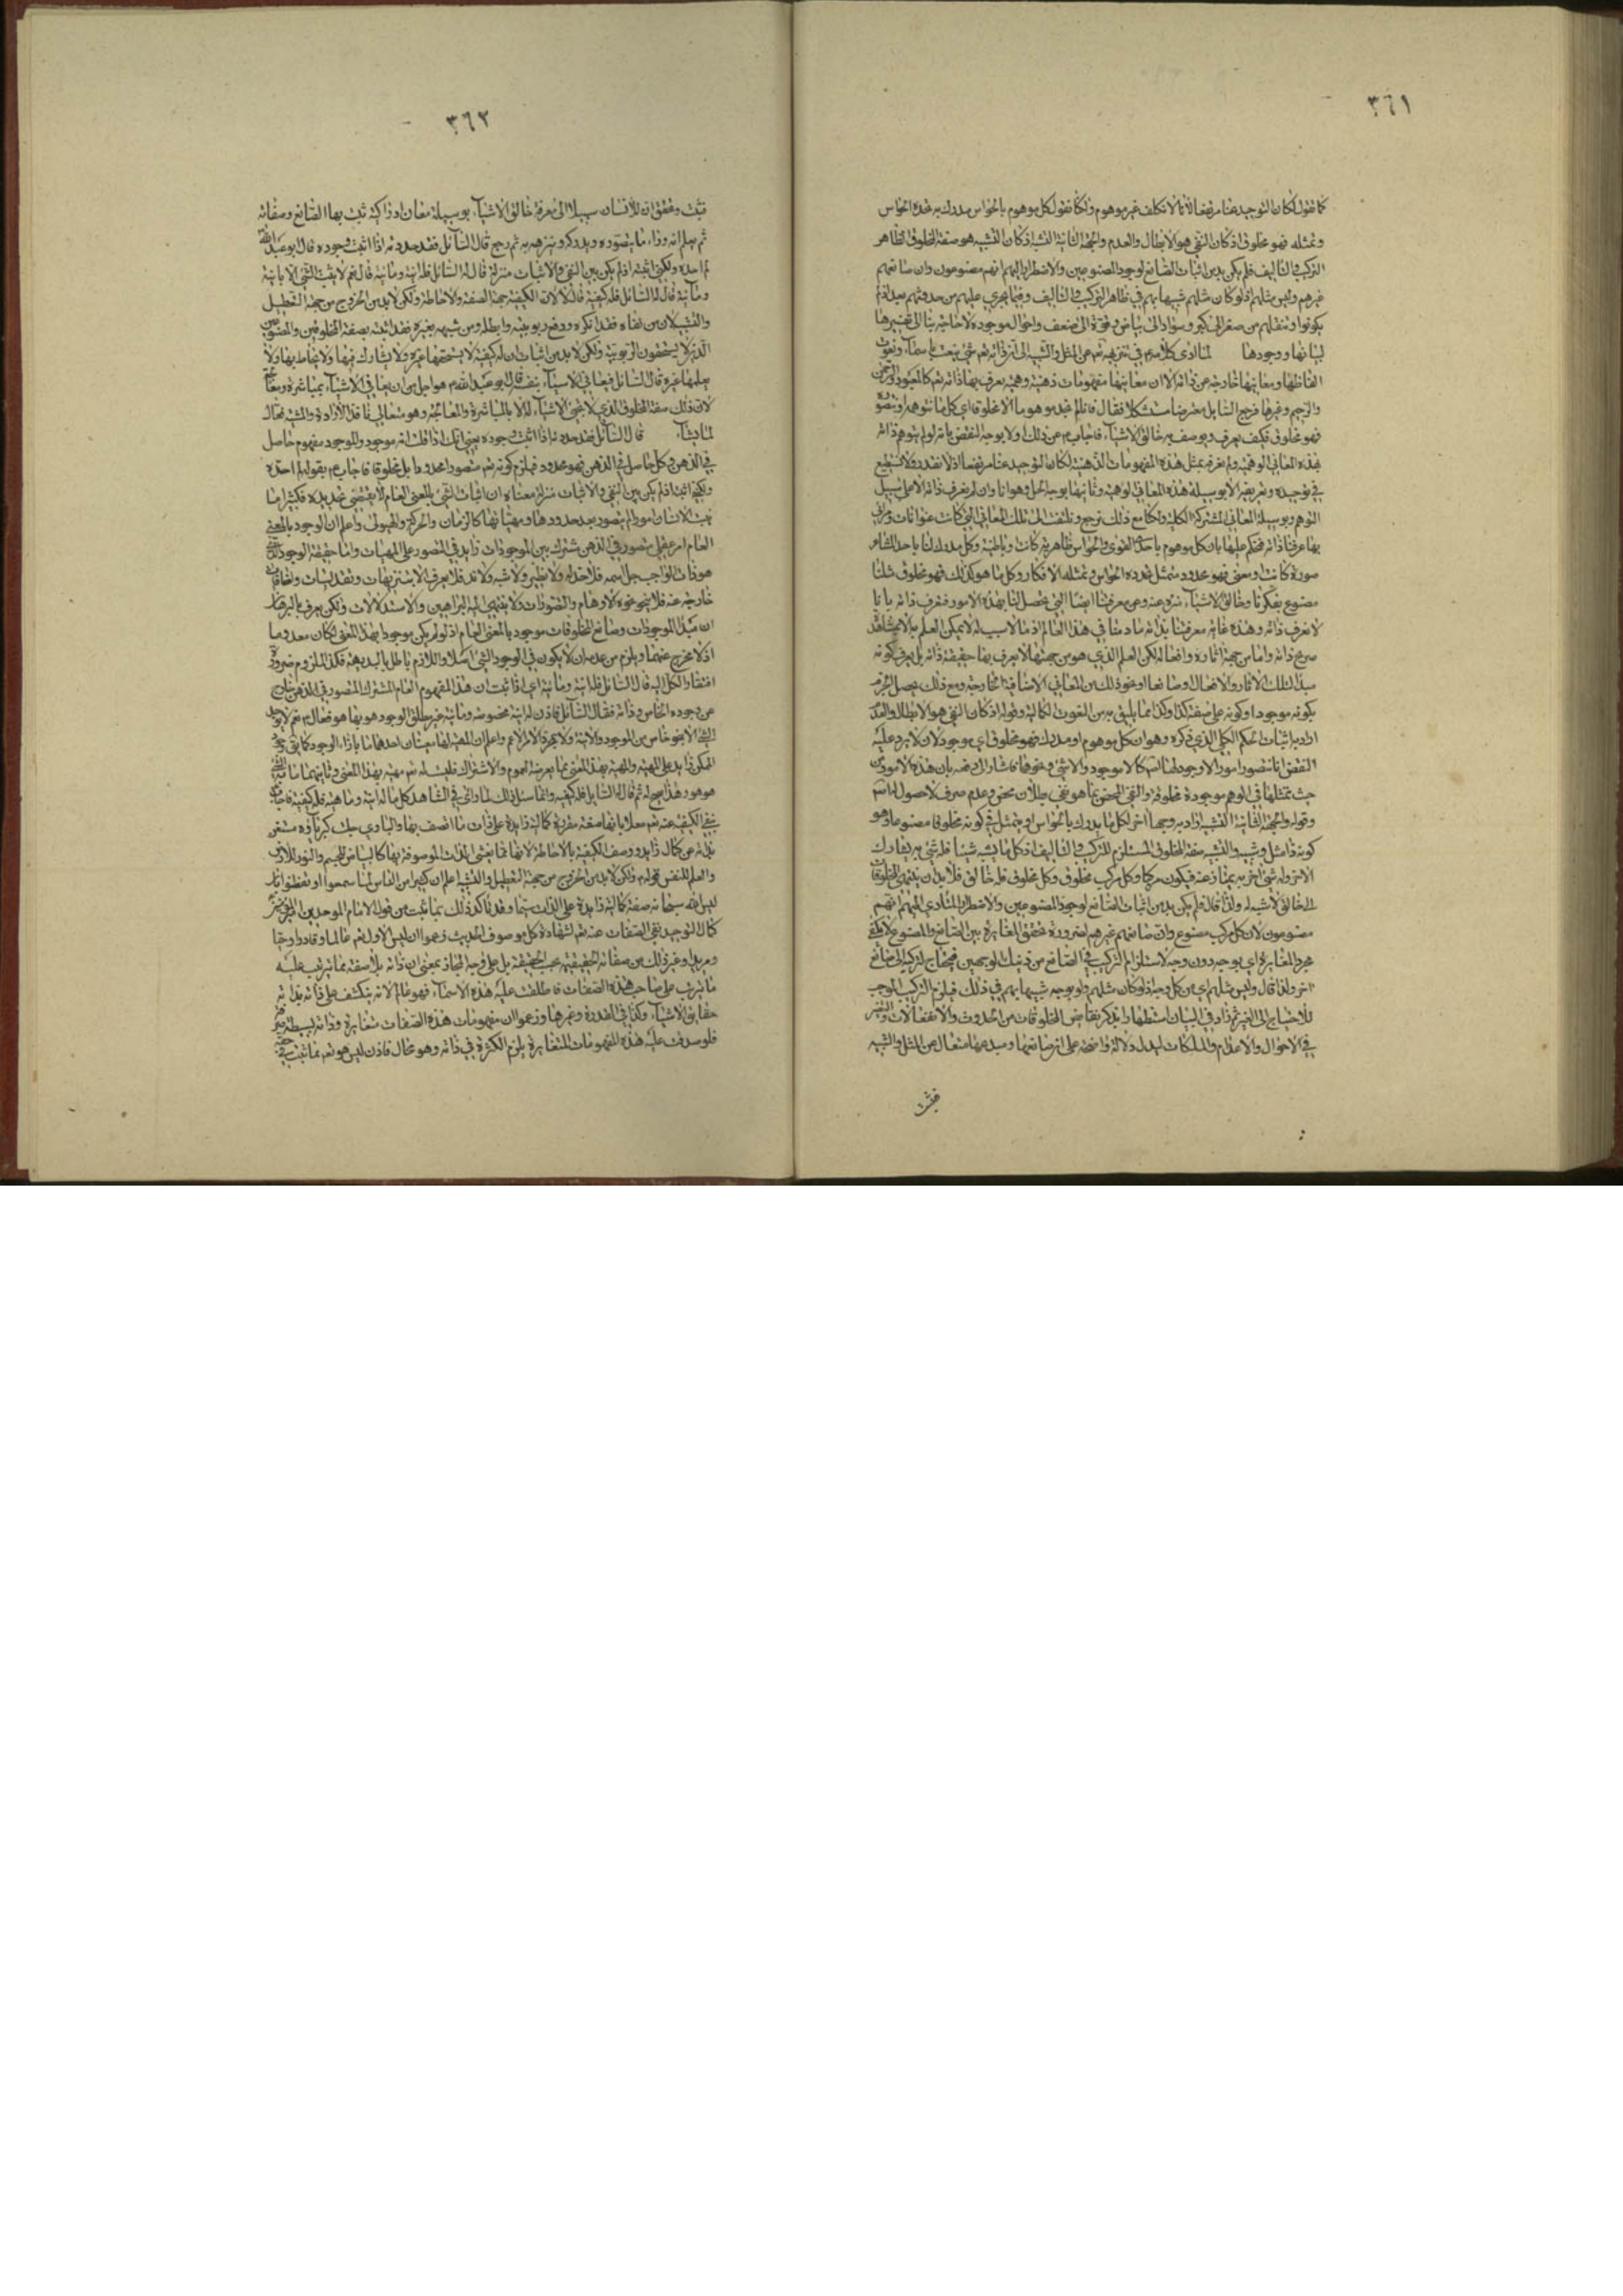 ٣٦١
كما تقول لكان التوحيد عنا مرتفعا لانا لا نكلف غير موهوم ولكنا نقول كل موهوم بالحواس مدرك به تحده الحواس
وتمثله فهو مخلوق اذ كان النفي هو الابطال والعدم والجهة الثانية التشبيه اذ كان التشبيه هو صفة المخلوق الظاهر
التركيب والتاليف فلم يكن بد من اثبات الصانع لوجود المصنوعين والاضطرار اليهم انهم مصنوعون وان صانعهم
غيرهم وليس مثلهم اذ لو كان مثلهم شبيها بهم في ظاهر التركيب والتاليف وفيما يجري عليهم من حدوثهم بعد اذ لم
يكونوا وتنقلهم من صغر الى كبر وسواد الى بياض وقوة الى ضعف واحوال موجودة لا حاجة بنا الى تفسيرها
لبيانها ووجودها لما ادى كلامه في تنزيهه تعالى عن المثل والشبه الى انه ذاته تعالى شيء ينعت باسماء ونعوت
الفاظها ومعانيها خارجة عن ذاته الا ان معانيها مفهومات ذهنية وهمية يعرف بها ذاته تعالى كالمعبود والرحمن
والرحيم وغيرها فرجع السايل معترضا مستشكلا فقال فانا لم نجد موهوما الا مخلوقا اي كل ما نتوهمه او نتصوره
فهو مخلوق فكيف يعرف ويوصف به خالق الاشياء فاجاب عن ذلك اولا بوجه النقض بانه لو لم نتوهم ذاته
بهذه المعاني الوهمية ولم نعرفه بمثل هذه المفهومات الذهنية لكان التوحيد عنا مرتفعا اذ لا نقدر ولا نستطيع
في توحيده وتعريفه الا بوسيلة هذه المعاني الوهمية وثانيها بوجه الحل وهو انا وان لم نعرف ذاته الا على سبيل
التوهم وبوسيلة المعاني المشتركة الكلية ولكنا مع ذلك نرجع ونلتفت الى تلك المعاني التي كانت عنوانات ومرائي
بها عرفنا ذاته فنحكم عليها بان كل موهوم باحدى القوى والحواس ظاهرية كانت او باطنية وكل مدرك لنا باحد المشاعر
صورة كانت او معنى فهو محدود متمثل تحده الحواس وتمثله الافكار وكل ما هو كذلك فهو مخلوق مثلنا
مصنوع بفكرنا وخالق الاشياء منزه عنه وعن معرفتنا ايضا التي تحصل لنا بهذه الامور فنعرف ذاته بانا
لا نعرف ذاته وهذه غاية معرفتنا بذاته ما دمنا في هذا العالم اذ ما لا سبب له لا يمكن العلم به الا بمشاهدة
صريح ذاته واما من جهة آثاره وافعاله لكن العلم الذي هو من جهتها لا يعرف بها حقيقة ذاته بل يعرف كونه
مبدأ لتلك الآثار والافعال او صانعا او نحو ذلك من المعاني الاضافية الخارجة ومع ذلك يحصل الجزم
بكونه موجودا وكونه على صفة كذا وكذا مما يليق به من النعوت الكمالية وقوله اذ كان النفي هو الابطال والعدم
اراد به اثبات الحكم الكلي الذي ذكره وهو ان كل موهوم او مدرك فهو مخلوق اي موجود لان لا يرد عليه
النقض انا نتصور امورا لا وجود لها
حيث تمثلها في الوهم موجودة مخلوقة والنفي المحض بما هو نفي بطلان محض وعدم صرف لا حصول له
وقوله والجهة الثانية التشبيه اراد به وجها آخر لكل ما يدرك بالحواس او يتمثل في كونه مخلوقا مصنوعا وهو
كونه ذا مثل وشبيه والتشبيه صفة المخلوق المستلزم للتركيب والتاليف اذ كل ما يشبه شيئا فله شيء به يشارك
الاخر وله شيء آخر به يمتاز عنه فيكون مركبا وكل مركب مخلوق وكل مخلوق فله خالق فلا بد ان ينتهي المخلوقات
الى خالق لا شبه له ولذا قال فلم يكن بد من اثبات الصانع لوجود المصنوعين والاضطرار اليهم انهم
مصنوعون لان كل مركب مصنوع وان صانعهم غيرهم لضرورة تحقق المغايرة بين الصانع والمصنوع ولا يكفي
مجرد المغايرة اي بوجه دون وجه لاستلزام التركيب في الصانع من ذينك الوجهين فيحتاج لتركيبه الى صانع
اخر ولذا قال وليس مثلهم اي من كل وجه اذ لو كان مثلهم ولو بوجه شبيها بهم في ذلك فيلزم التركيب الموجب
للاحتياج الى الغير ثم زاد في البيان استظهارا بذكر نقايص المخلوقات من الحدوث والانفعالات والتغير
في الاحوال والاعدام والملكات ليدل دلالة واضحة على ان صانعها ومبدعها متعال عن المثل والشبه
فثبت
٣٦٢
فثبت وتحقق ان للانسان سبيلا الى معرفة خالق الاشياء بوسيلة معان ادراكية ثبت بها الصانع وصفاته
ثم يعلم انه وراء ما يتصوره ويدركه وينزهه به ثم رجع قال السائل فقد حددته اذا اثبت وجوده قال ابو عبد الله
لم احده ولكني اثبته اذ لم يكن بين النفي والاثبات منزلة قال له السائل فله انية ومائية قال نعم لا يثبت الشيء الا بانية
ومائية قال له السائل فله كيفية قال لا لان الكيفية جهة الصفة والاحاطة ولكن لا بد من الخروج من جهة التعطيل
والتشبيه لان من نفاه فقد انكره ودفع ربوبيته وابطله ومن شبهه بغيره فقد اثبته بصفة المخلوقين المصنوعين
الذين لا يستحقون الربوبية ولكن لا بد من اثبات ان له كيفية لا يستحقها غيره ولا يشارك فيها ولا يحاط بها ولا
يعلمها غيره قال السائل فيعاني الاشياء بنفسه قال ابو عبد الله هو اجل من ان يعاني الاشياء بمباشرة ومعالجة
لان ذلك صفة المخلوق الذي لا تجيء الاشياء له الا بالمباشرة والمعالجة وهو متعالي نافذ الارادة والمشية فعال
لما يشاء قال السائل فقد حددته اذا اثبت وجوده يعني انك اذا قلت انه موجود والموجود مفهوم حاصل
في الذهن وكل حاصل في الذهن فهو محدود فيلزم كونه تعالى متصورا محدودا بل مخلوقا فاجاب بقوله لم احده
ولكني اثبته اذ لم يكن بين النفي والاثبات منزلة معناه ان اثبات الشيء بالمعنى العام لا يقتضي تحديده فكثيرا ما
يثبت الانسان امورا لم يتصور بعد حدودها ومهياتها كالزمان والحركة والهيولى واعلم ان الوجود بالمعنى
العام امر عقلي متصور في الذهن مشترك بين الموجودات زايد في التصور على المهيات واما حقيقة الوجود
هو ذات الواجب جل اسمه فلا حد له ولا نظير ولا شبه ولا ند فلا يعرف الا بتنزيهات وتقديسات واضافات
خارجة عنه فلا ينحو نحوه الاوهام والتصورات ولا ينتهي اليه البراهين والاستدلالات ولكن يعرف بالبرهان
ان مبدأ الموجودات وصانع المخلوقات موجود بالمعنى العام اذ لو لم يكن موجودا بهذا المعنى لكان معدوما
اذ لا مخرج عنهما ويلزم من عدمه ان لا يكون في الوجود شيء اصلا واللازم باطل بالبديهة فكذا الملزوم ضرورة
افتقار الكل اليه قال السائل فله انية ومائية اي اذا ثبت ان هذا المفهوم العام المشترك المتصور في الذهن خارج
عن وجوده الخاص وذاته فقال السائل فاذن له انية مخصوصة ومائية غير مطلق الوجود هو بها هو فقال نعم لا يوجد
الشيء الا بنحو خاص من الوجود والانية ولا بمجرد الامر الاعم واعلم ان للمهية معنيان احدهما ما بازاء الوجود كما يقال وجود
الممكن زايد على المهية والمهية بهذا المعنى مما يعرضه العموم والاشتراك فليست له تعالى مهية بهذا المعنى وثانيهما ما به الشيء
هو هو وهذا يصح له ثم قال له السايل فله كيفية وانما سئل ذلك لما رأى في الشاهد كل ما له انية وماهية فله كيفية فاجاب
بنفي الكيفية عنه تعالى معللا بانها صفة مفردة كمالية زايدة على ذات ما اتصف بها والباري جلت كبرياؤه مستغن
بذاته عن كمال زايد ووصف الكيفية بالاحاطة لانها مما يغشى الذات الموصوفة بها كالبياض للجسم والنور للارض
والعلم للنفس قوله ولكن لا بد من الخروج من جهة التعطيل والتشبيه اعلم ان كثيرا من الناس لما سمعوا او تفطنوا بان
ليس لله سبحانه صفة كمالية زايدة على الذات سيما وقد تأكد ذلك بما ثبت من قول الامام الموحدين امير المؤمنين
كمال التوحيد نفي الصفات عنه تعالى لشهادة كل موصوف الحديث زعموا ان ليس الاول تعالى عالما وقادرا وحيا
ومريدا وغير ذلك من صفاته الحقيقية بحسب الحقيقة بل على وجه المجاز بمعنى ان ذاته بلا صفة مما يترتب عليه
ما يترتب على صاحب هذه الصفات فاطلقت عليه هذه الاسماء فهو عالم لانه ينكشف على ذاته بذاته
حقايق الاشياء وكذا في القدرة وغيرها وزعموا ان مفهومات هذه الصفات متغايرة وذاته بسيطة
فلو صدقت عليه هذه المفهومات المتغايرة يلزم الكثرة في ذاته وهو محال فاذن ليس هو تعالى مما ثبت في حقه